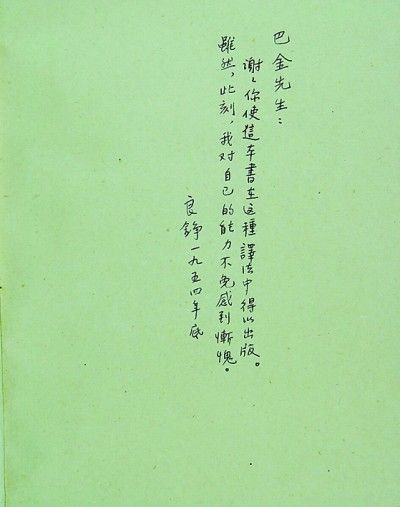 巴金先生：
謝々你使這本書在这種譯法中得以出版。
雖然，此刻，我对自己的能力不免感到慚愧。
良錚一九五四年底